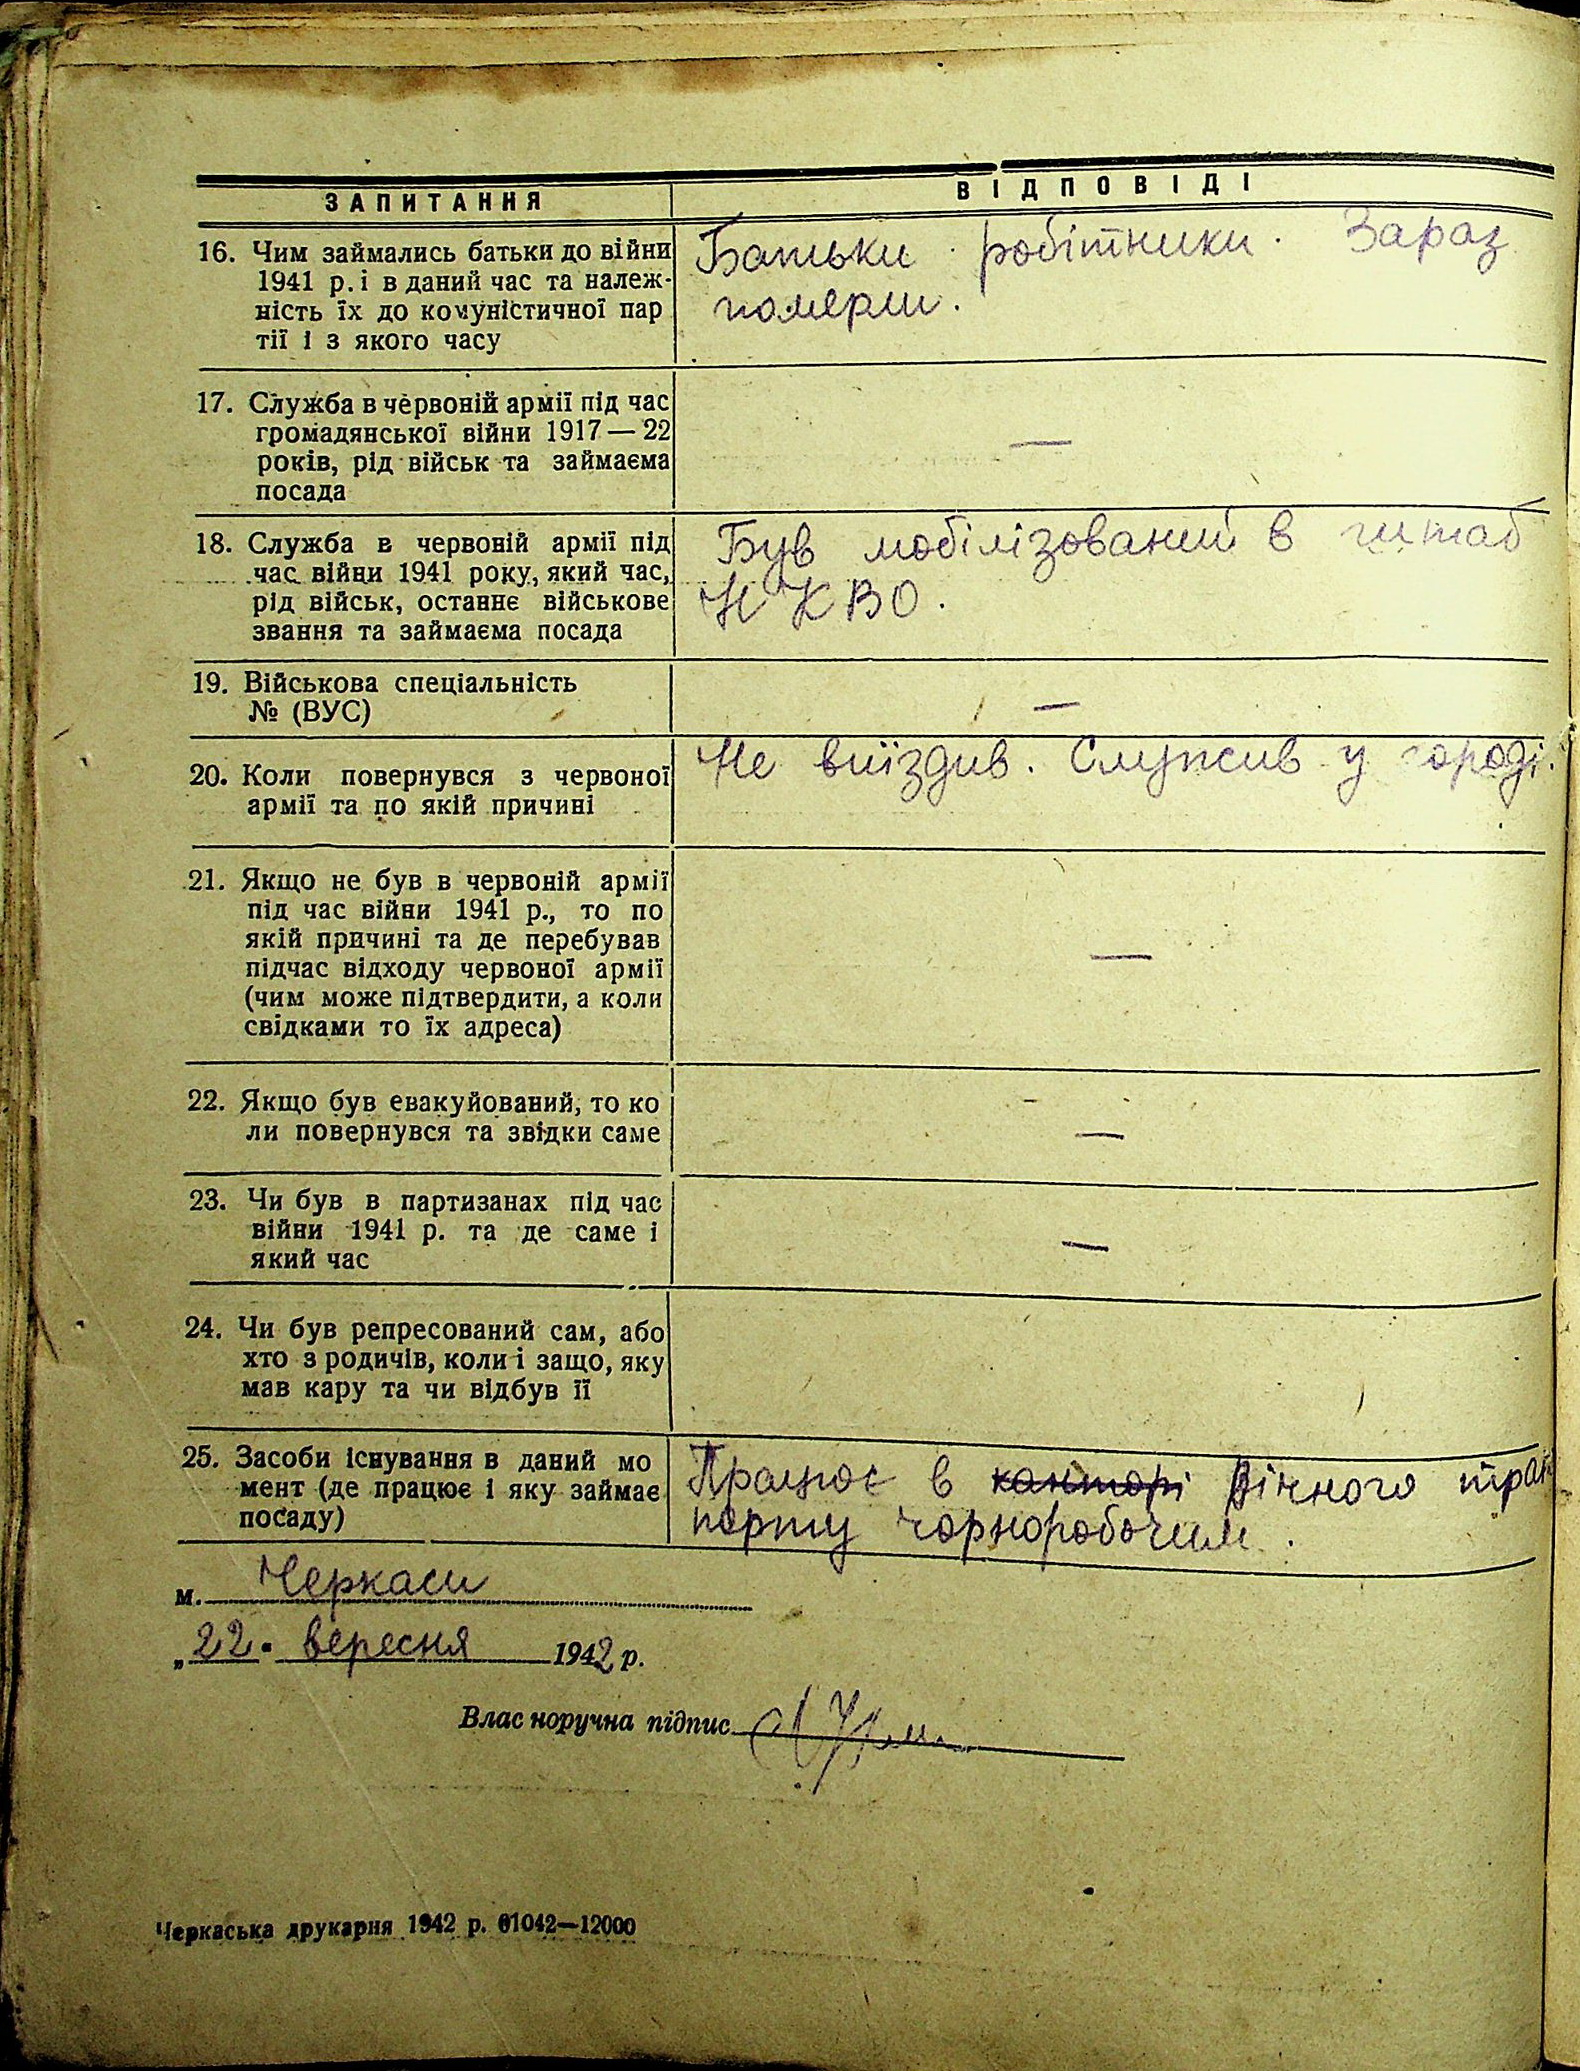 ЗАПИТАННЯ
ВІДПОВІДІ
16. Чим займались батьки до війни
1941 р. і в даний час та належ-
ність їх до комуністичної пар
тії і з якого часу
Батьки робітники. Зараз
померли.
17. Служба в червоній армії під час
громадянської війни 1917 — 22
років, рід військ та займаєма
посада
—
18. Служба в червоній армії під
час війни 1941 року, який час,
рід військ, останнє військове
звання та займаєма посада
Був мобілізований в штаб
НКВО.
19. Військова спеціальність
№ (ВУС)
—
20. Коли повернувся з червоної
армії та по якій причині
Не виїздив. Служив у городі.
21. Якщо не був в червоній армії
під час війни 1941 р., то по
якій причині та де перебував
підчас відходу червоної армії
(чим може підтвердити, а коли
свідками то їх адреса)
—
22. Якщо був евакуйований, то ко
ли повернувся та звідки саме
—
23. Чи був в партизанах під час
війни 1941 р. та де саме і
який час
—
24. Чи був репресований сам, або
хто з родичів, коли і защо, яку
мав кару та чи відбув її
25. Засоби існування в даний мо
мент (де працює і яку займає
посаду)
Працює в канторі Річного тран
порту чорноробочим.
м. Черкаси
„22" вересня 1942 р.
Влас норучна підпис
Черкаська друкарня 1942 р. 01042—12000